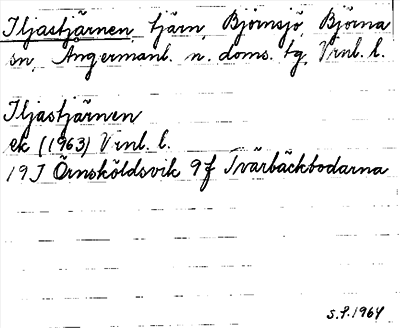 Iljastjärnen, tjärn, Björnsjö, Björna
sn, Ångermanl. n. doms. tg, Vrnl. l.
Iljastjärnen
ek (1963) Vrnl. l.
19J Örnsköldsvik 9f Tvärbäckbodarna
S.P. 1964